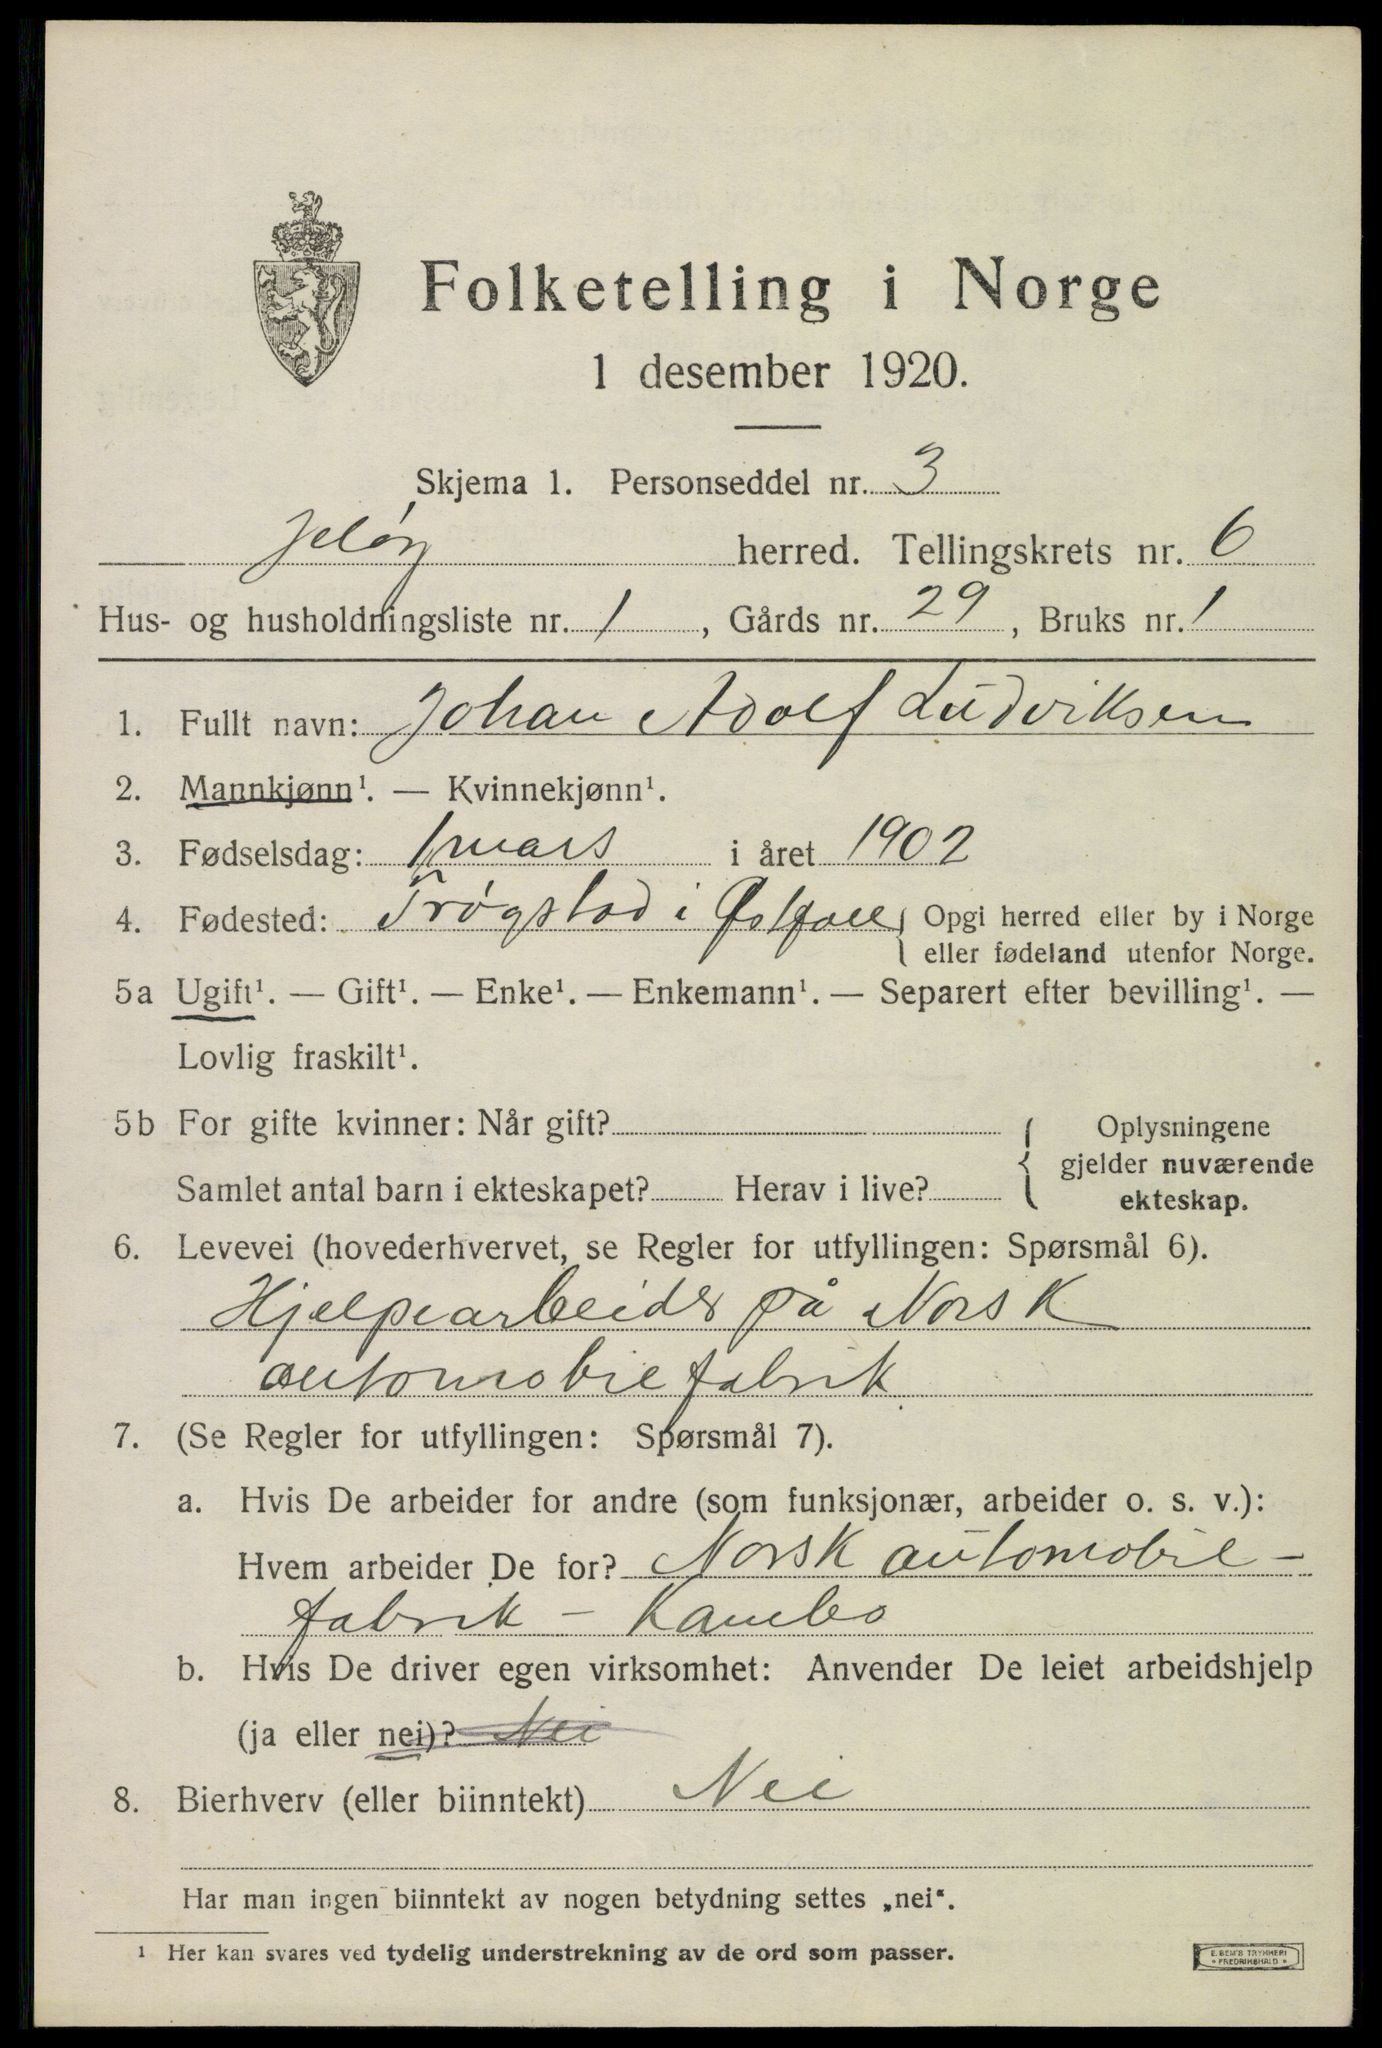 Folketelling i Norge
1 desember 1920.
Skjema 1. Personseddel nr. 3
Jeløy herred. Tellingskrets nr. 6
Hus- og husholdningsliste nr. 1, Gårds nr. 29, Bruks nr. 1
1. Fullt navn: Johan Adolf Ludviksen
2. Mannkjønn¹. — Kvinnekjønn¹.
3. Fødselsdag: 1 mars i året 1902
4. Fødested: Trøgstad i Østfoll { Opgi herred eller by i Norge
eller fødeland utenfor Norge.
5a Ugift¹. — Gift¹. — Enke¹. — Enkemann¹. — Separert efter bevilling¹. —
Lovlig fraskilt¹.
5b For gifte kvinner: Når gift?
Samlet antal barn i ekteskapet? Herav i live?
{ Oplysningene
gjelder nuværende
ekteskap.
6. Levevei (hovederhvervet, se Regler for utfyllingen: Spørsmål 6).
Hjelpearbeider på Norsk
automobilfabrik
7. (Se Regler for utfyllingen: Spørsmål 7).
a. Hvis De arbeider for andre (som funksjonær, arbeider o. s. v.):
Hvem arbeider De for? Norsk automobil-
fabrik - Kambo
b. Hvis De driver egen virksomhet: Anvender De leiet arbeidshjelp
(ja eller nei)? Nei
8. Bierhverv (eller biinntekt) Nei
Har man ingen biinntekt av nogen betydning settes „nei“.
¹ Her kan svares ved tydelig understrekning av de ord som passer.
E. SEM'S TRYKKERI
• FREDRIKSHALD •